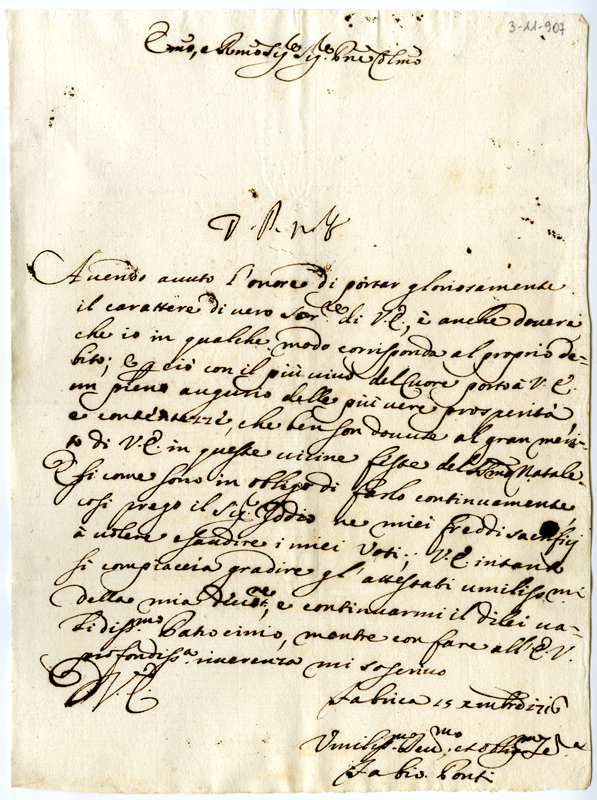 3-11-907
Emo, e Rmo Sig.re Sig.re Pne Colmo
Avendo avuto l'onore di portar gloriosamente
il carattere di vero Ser.re di V.E., è anche dovere
che io in qualche modo corrisponda al proprio de-
bito; e ciò con il più vivo del Cuore porto à V.E.
un pieno augurio delle più vere prosperità
e contentezze, che ben son dovute al gran meri-
to di V.E. in queste vicine feste del Natale.
E si come sono in obligo di farlo continuamente
così prego il Sig.e Iddio ne miei freddi sacrificij
à volere esaudire i miei voti; V.E. intanto
si compiaccia gradire gl'attestati umilissmi
della mia, e continuarmi il dilei va-
lidiss.mo Patrocinio, mentre con fare all'E.V.
profondiss.a riverenza mi soscrivo
D V.E.
Fabrica 15 Xmbre 1716
Umiliss.mo Dev.mo, et Obblig.mo Se.re
Fabio Ponti